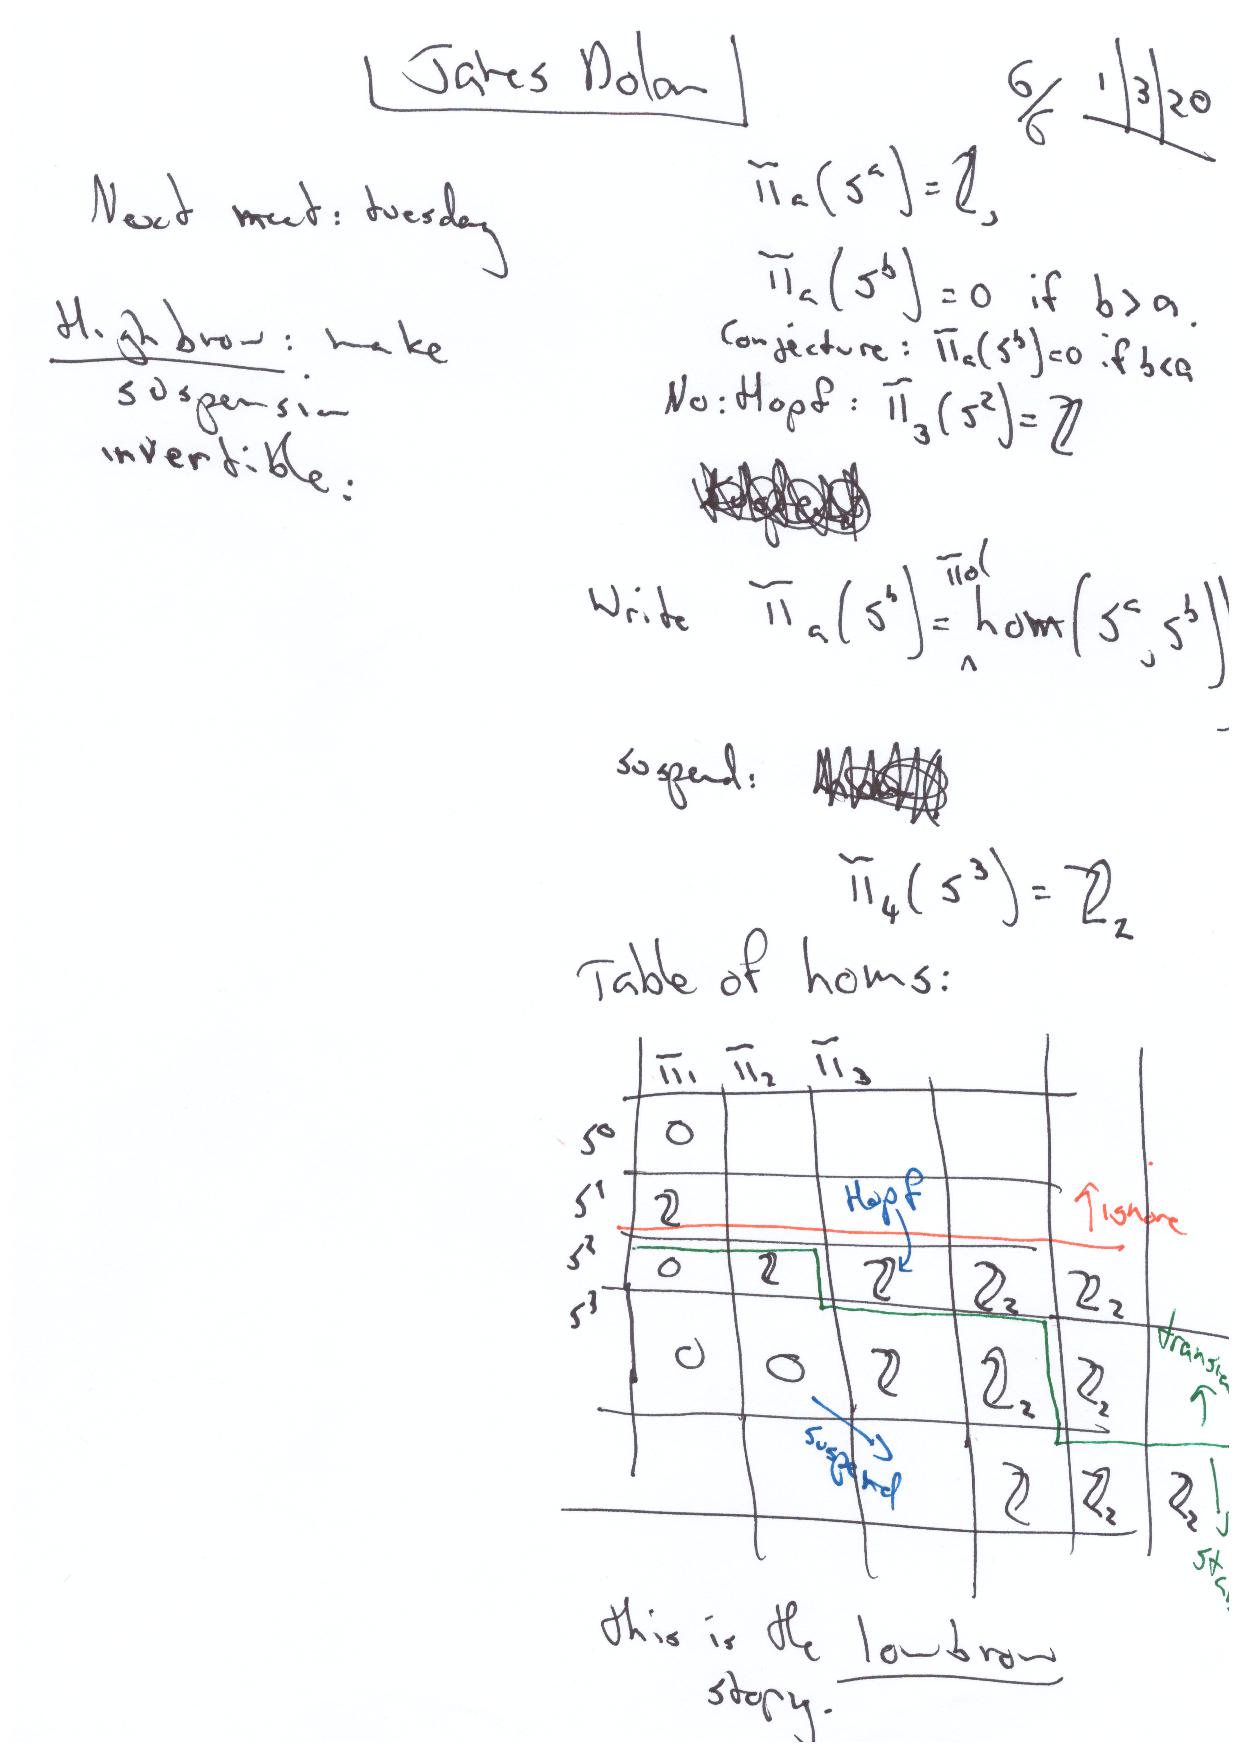 James Dolan
6/6 1|3|20
Next meet: tuesday
Highbrow: make
suspension
invertible:
π̃ₐ(Sᵃ) = ℤ,
π̃ₐ(Sᵇ) = 0 if b > a.
Conjecture: π̃ₐ(Sᵇ) = 0 if b < a
No: Hopf: π̃₃(S²) = ℤ
Write π̃ₐ(Sᵇ) = π̃₀(hom(Sᵃ, Sᵇ))
suspend:
π̃₄(S³) = ℤ₂
Table of homs:
π̃₁ π̃₂ π̃₃
S⁰ 0
S¹ ℤ Hopf ↑ ignore
S² 0 ℤ ℤ ℤ₂ ℤ₂
S³ 0 0 ℤ ℤ₂ ℤ₂
suspend
ℤ ℤ₂ ℤ₂
this is the lowbrow
story.